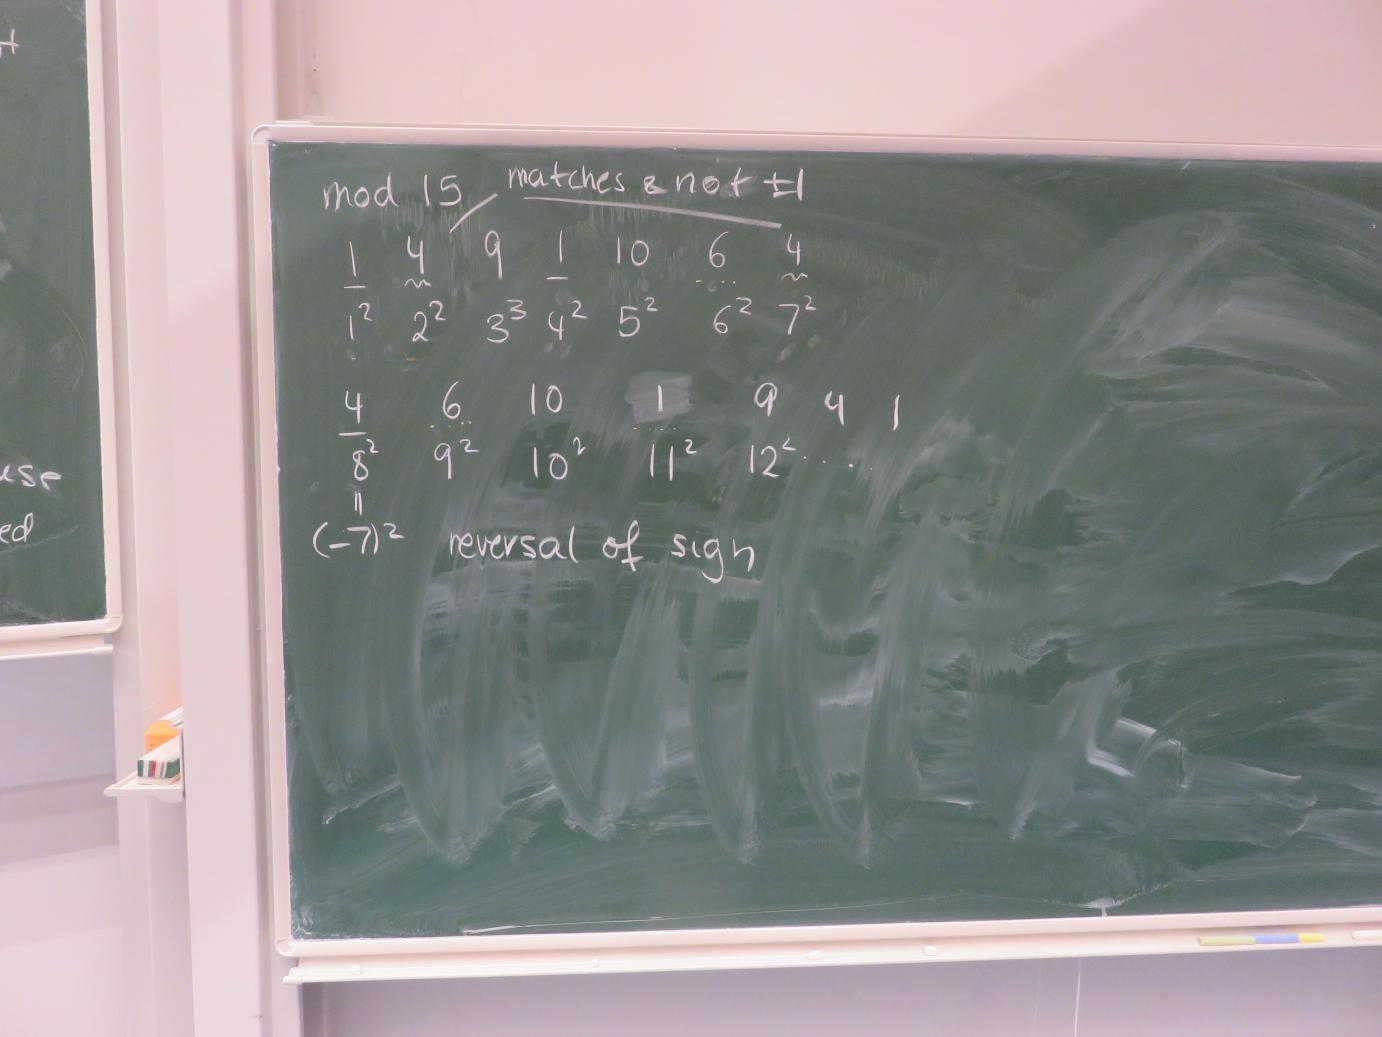 mod 15 matches & not ±1
1 4 9 1 10 6 4
1² 2² 3³ 4² 5² 6² 7²
4 6 10 1 9 4 1
8² 9² 10² 11² 12² ....
=
(-7)² reversal of sign
use
ed